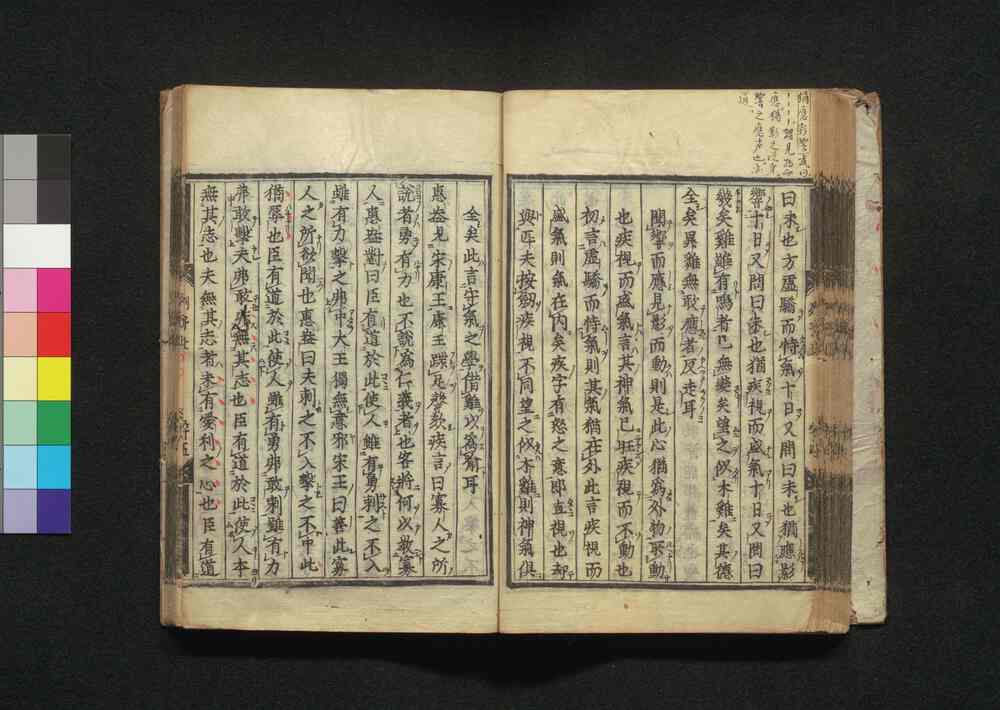 曰未也方虛驕而恃氣十日又問曰未也猶應影
響十日又問曰未也猶疾視而盛氣十日又問曰
幾矣雞雖有鳴者已無變矣望之似木雞矣其德
全矣異雞無敢應者反走耳
聞響而應見影而動則是此心猶爲外物所動
也疾視而盛氣言其神氣已旺疾視而不動也
初言虛驕而恃氣則其氣猶在外此言疾視而
盛氣則氣在内矣疾字有怒之意即直視也却
與匹夫按劒疾視不同望之似木雞則神氣俱
全矣此言守氣之學借雞以爲喻耳
惠盎見宋康王康王蹀足謦欬疾言曰寡人之所
說者勇有力也不說爲仁義者也客將何以教寡
人惠盎對曰臣有道於此使人雖有勇刺之不入
雖有力擊之弗中大王獨無意邪宋王曰善此寡
人之所欲聞也惠盎曰夫刺之不入擊之不中此
猶辱也臣有道於此使人雖有勇弗敢刺雖有力
弗敢擊夫弗敢非無其志也臣有道於此使人本
無其志也夫無其志者未有愛利之心也臣有道